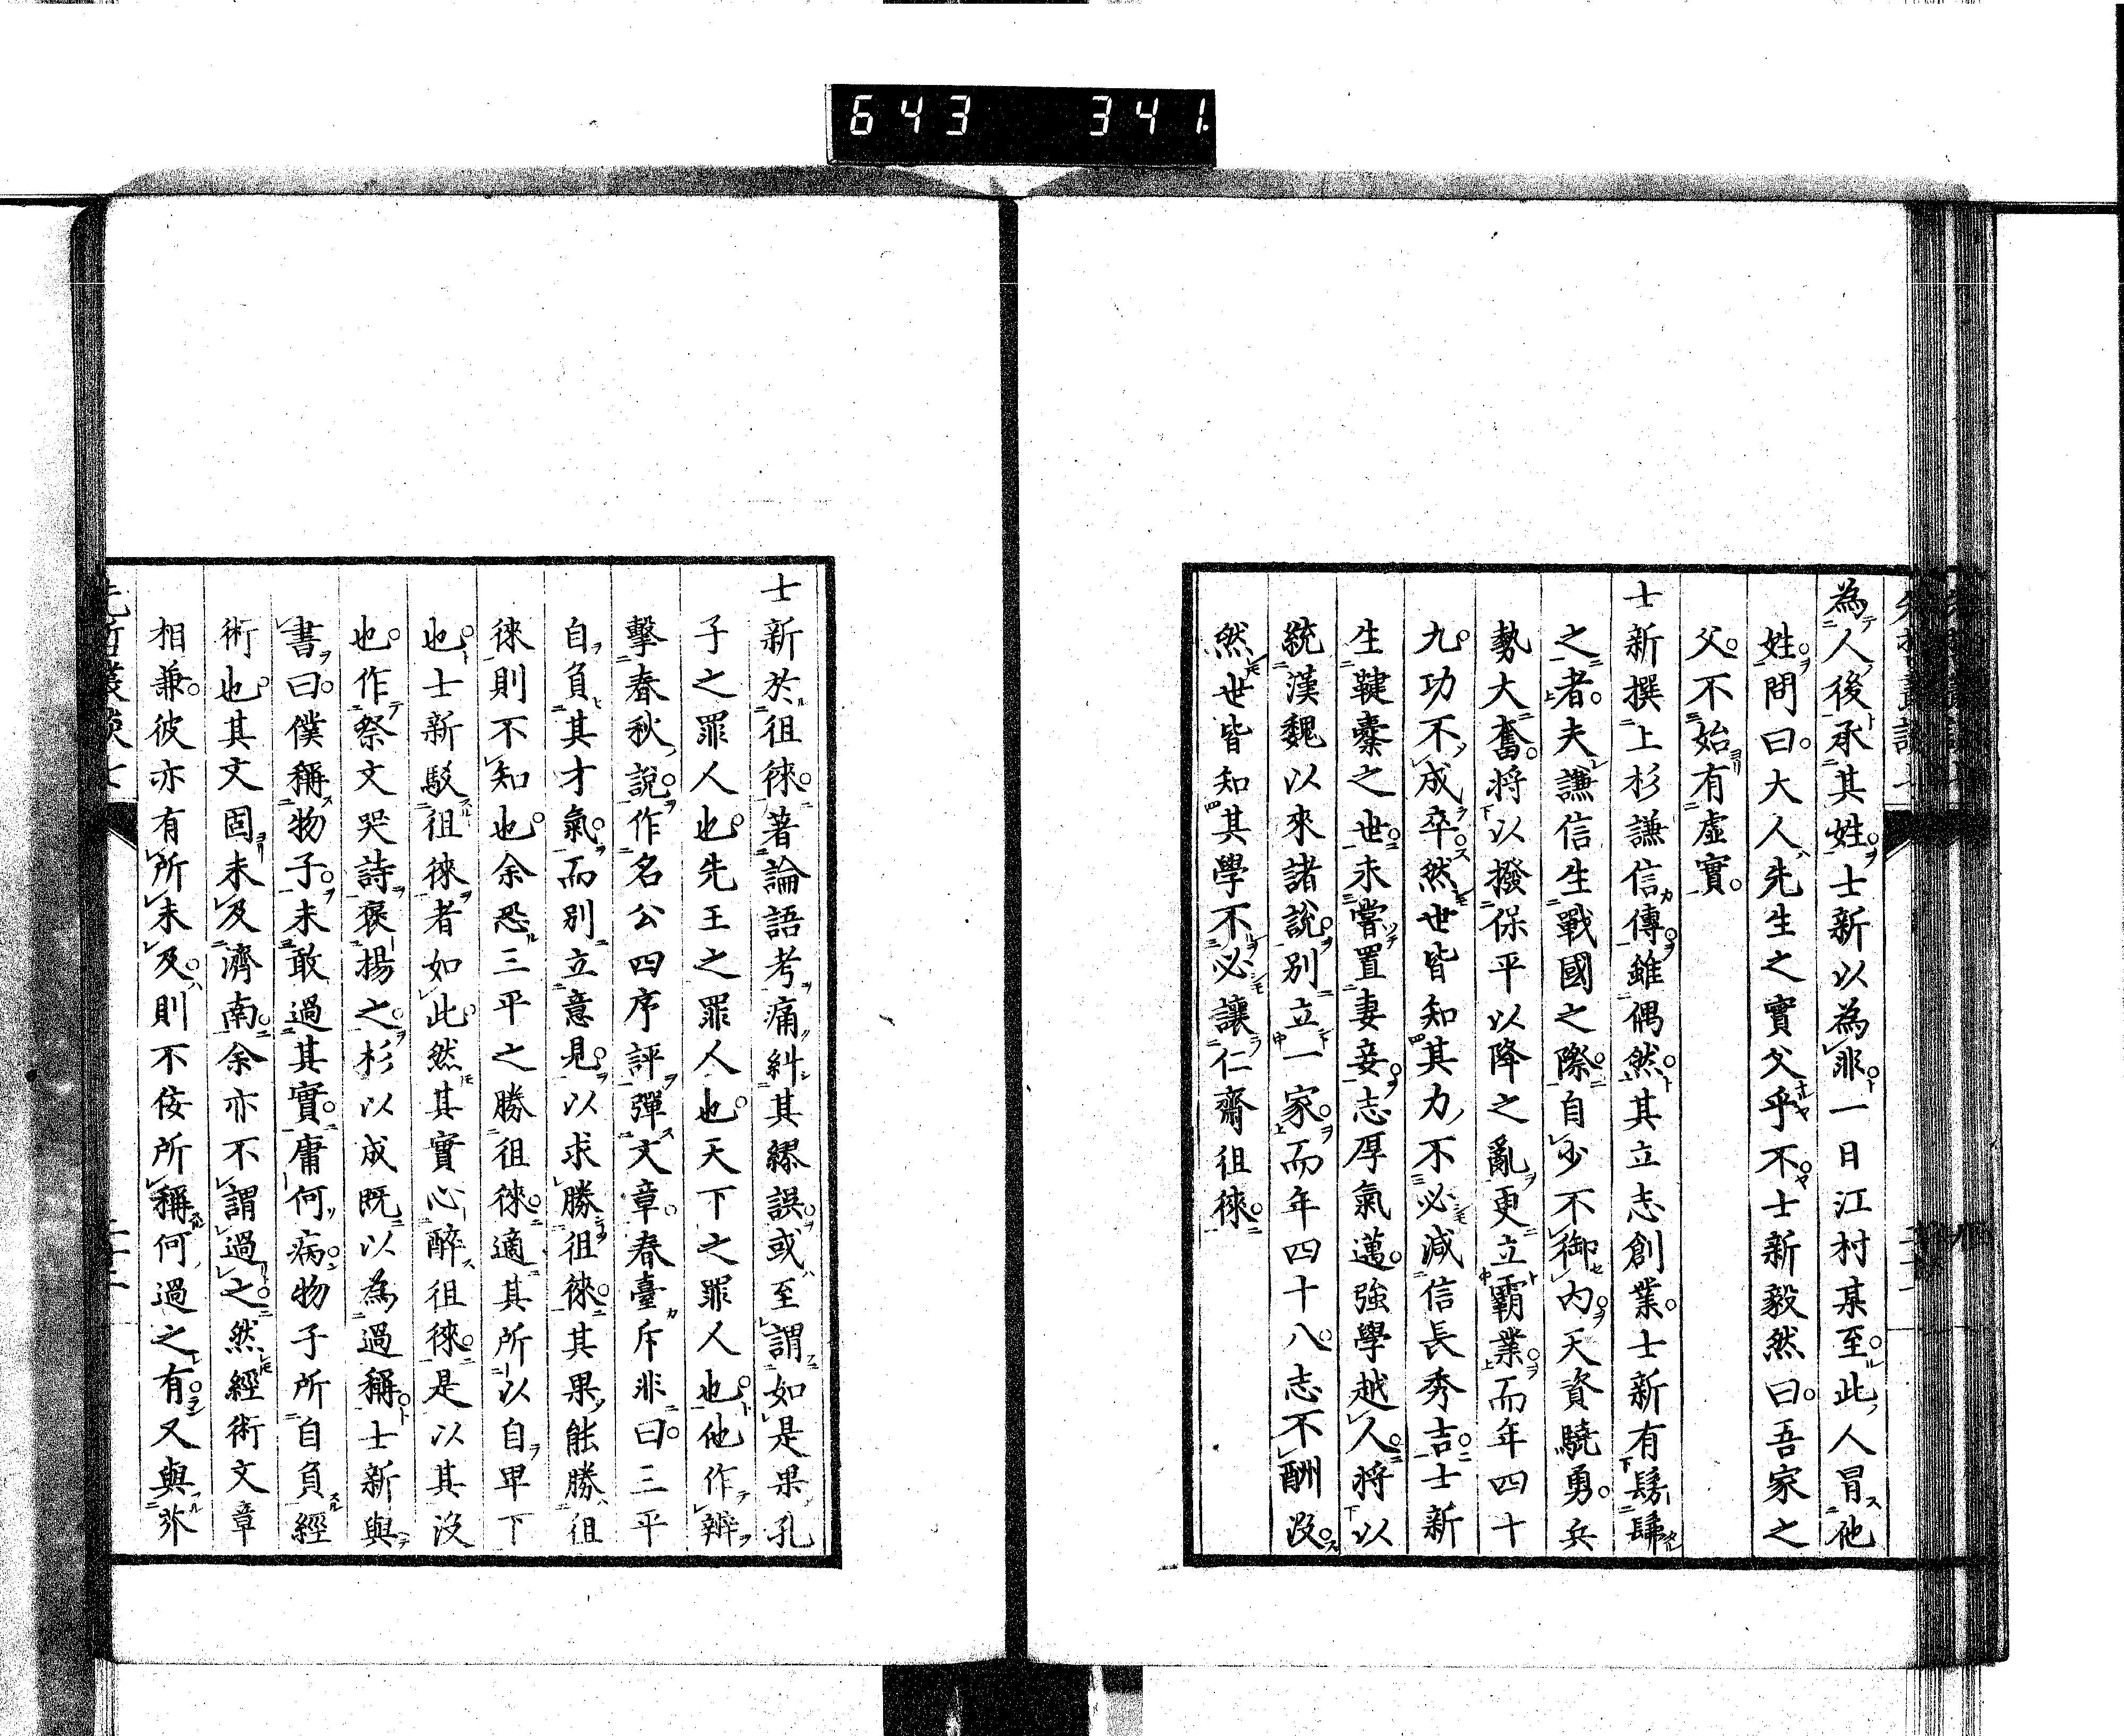 643 341.
為人後承其姓士新以為非一日江村某至此人冒他
姓問曰大人先生之實父乎不士新毅然曰吾家之
父不始有虛實
士新撰上杉謙信傳雖偶然其立志創業士新有髣髴
之者夫謙信生戰國之際自少不御內天資驍勇兵
勢大奮將以撥保平以降之亂更立霸業而年四十
九功不成卒然世皆知其力不必減信長秀吉士新
生鞬櫜之世未嘗置妻妾志厚氣邁強學越人將以
統漢魏以來諸說別立一家而年四十八志不酬沒
然世皆知其學不必讓仁齋徂徠
士新於徂徠著論語考痛糾其繆誤或至謂如是果孔
子之罪人也先王之罪人也天下之罪人也他作辨
擊春秋說作名公四序評彈文章春臺斥非曰三平
自負其才氣而別立意見以求勝徂徠其果能勝徂
徠則不知也余恐三平之勝徂徠適其所以自卑下
也士新駁徂徠者如此然其實心醉徂徠是以其沒
也作祭文哭詩褒揚之杉以成既以為過稱士新與
書曰僕稱物子未敢過其實庸何病物子所自負經
術也其文固未及濟南余亦不謂過之然經術文章
相兼彼亦有所未及則不佞所稱何過之有又與弥